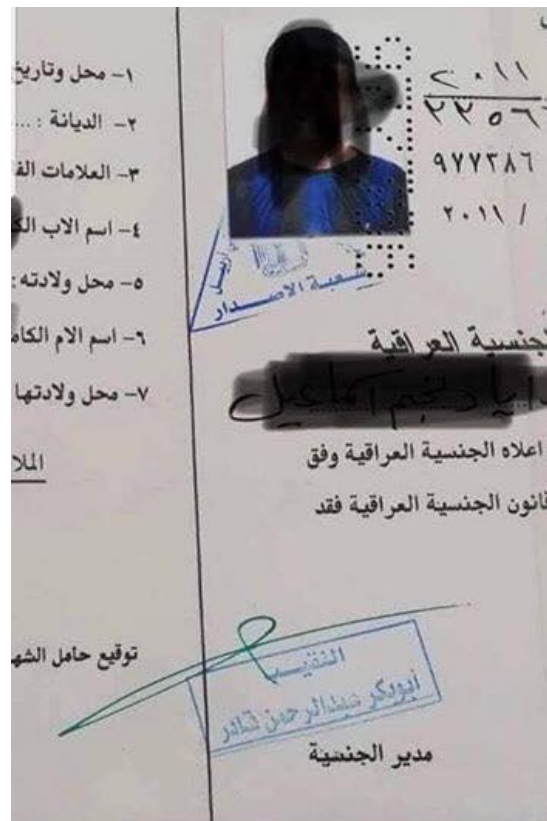 ٢٠١١
٩٧٧٢٨٦
٢٠١١ /
شعبة الاصدار
الجنسية العراقية
اعلاه الجنسية العراقية وفق
قانون الجنسية العراقية فقد
النقيب
ابوبكر عبدالرحمن قادر
مدير الجنسية
١- محل وتاريخ
٢- الديانة : ...
٣- العلامات
٤- اسم الاب
٥- محل ولادته :
٦- اسم الام
٧- محل ولادتها
توقيع حامل